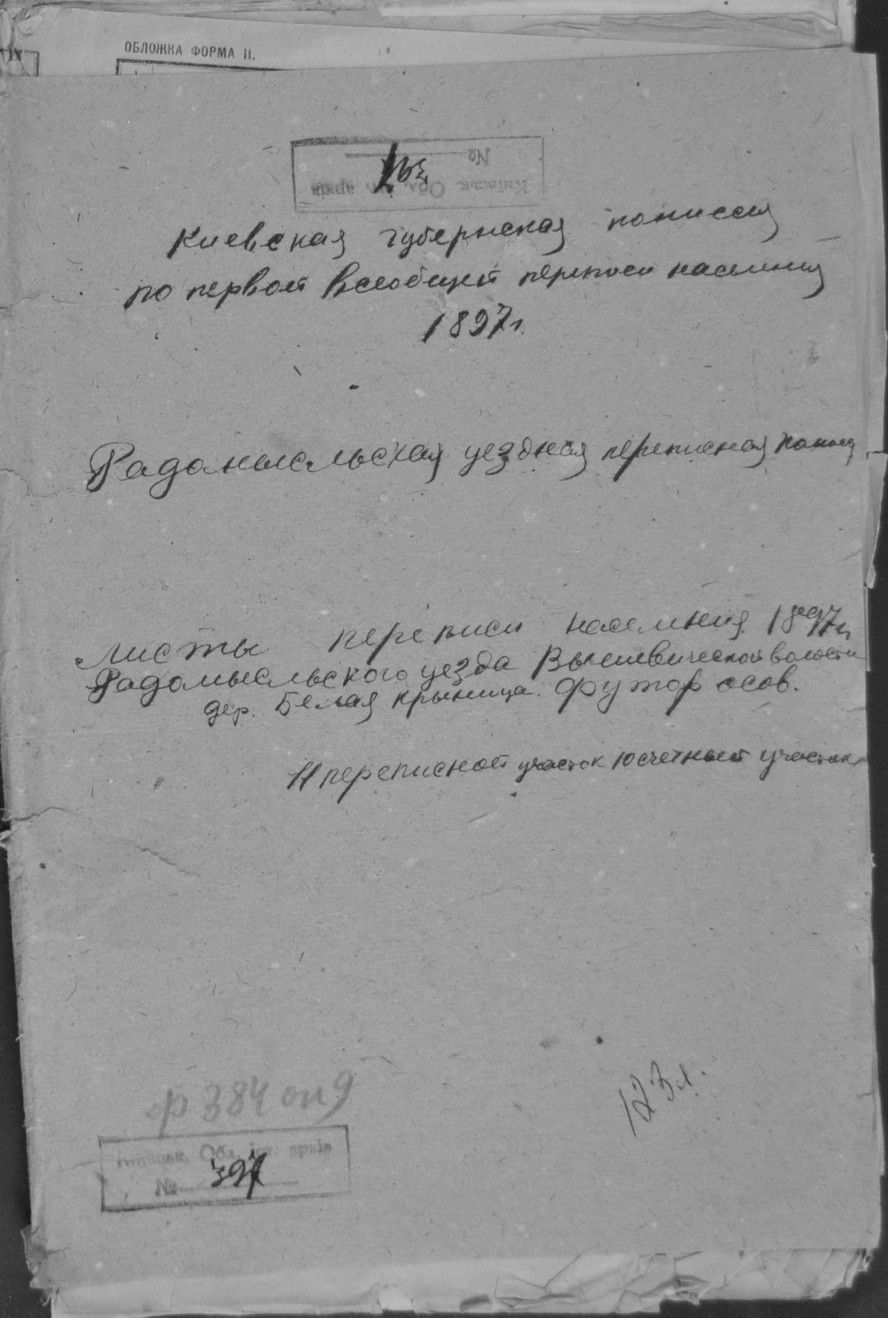 ОБЛОЖКА ФОРМА II.
№
Київськ. Обл. іст. архів
Киевская губернская комиссия
по первой всеобщей переписи населения
1897 г.
Радомысльская уездная переписная
Листы переписи населения 1897 г.
Радомысльского уезда Вышевической волости
дер. Белая Крыница. Футор осов.
11 переписной участок 10 счетный участок
123 л.
ф 384 оп 9
Київськ. Обл. іст. архів
№ 397